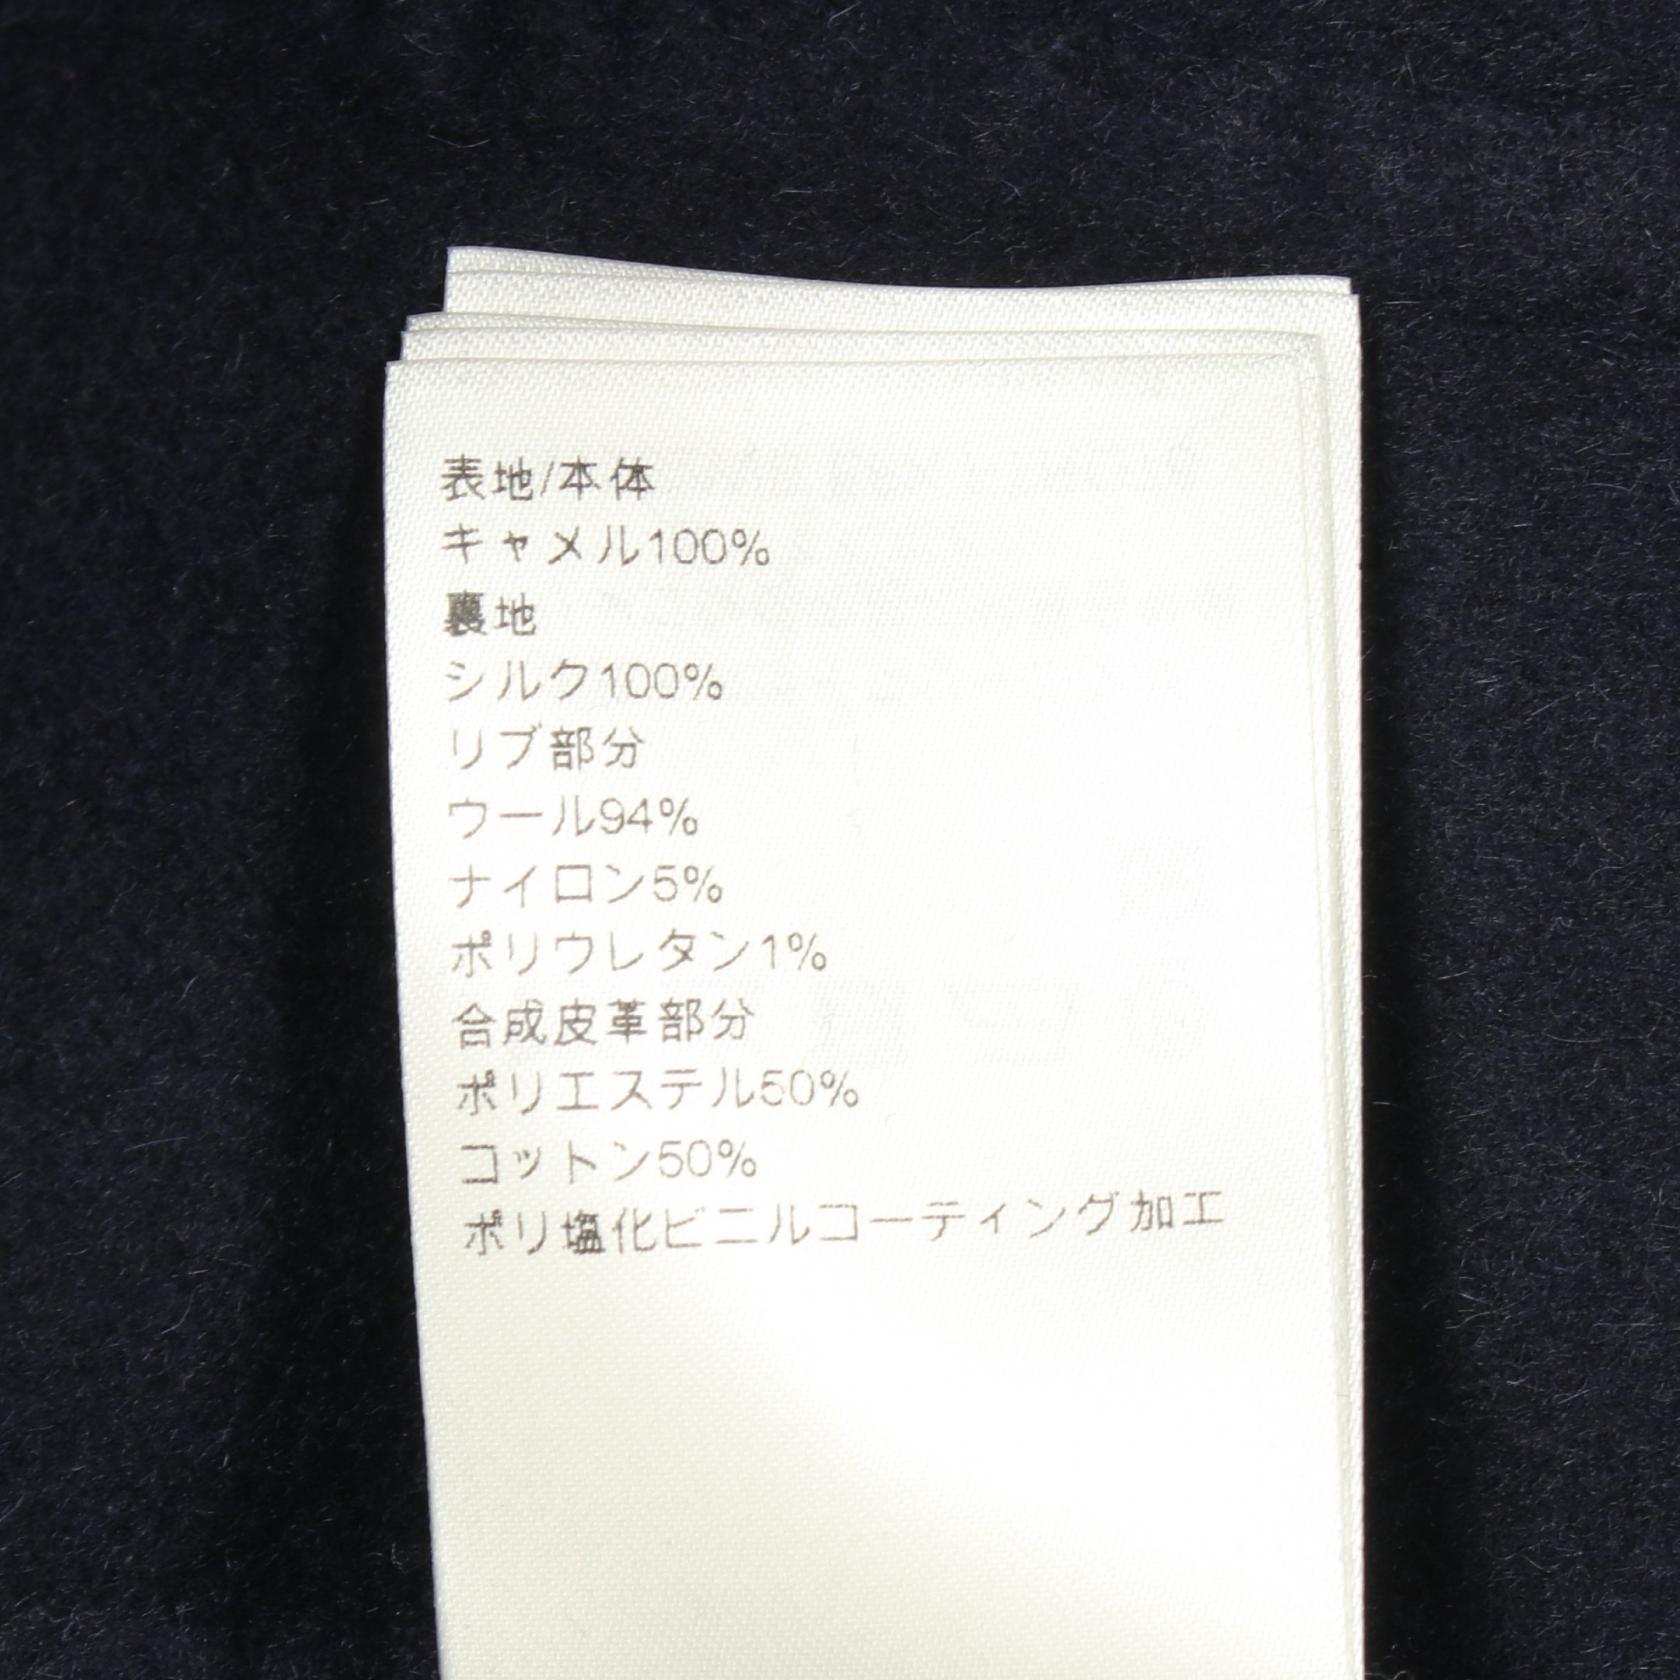 表地/本体
キャメル100%
裏地
シルク100%
リブ部分
ウール94%
ナイロン5%
ポリウレタン1%
合成皮革部分
ポリエステル50%
コットン50%
ポリ塩化ビニルコーティング加工